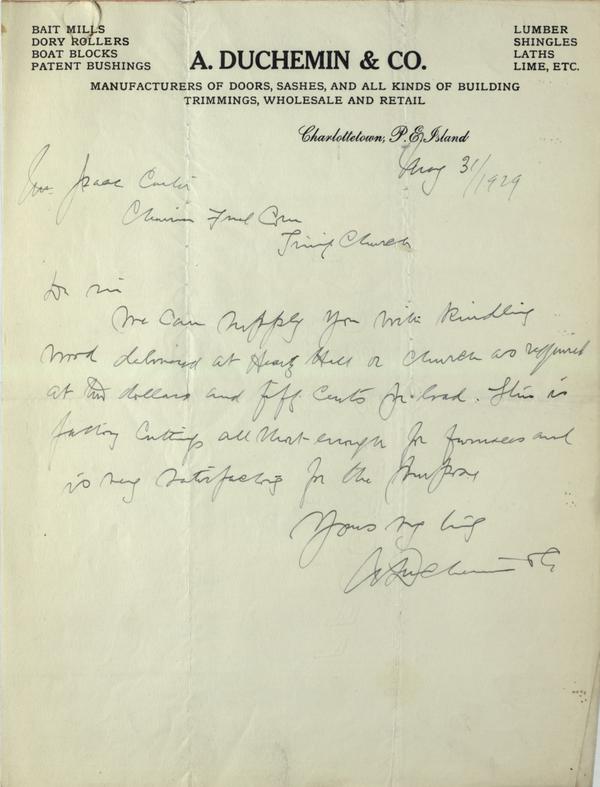 BAIT MILLS
DORY ROLLERS
BOAT BLOCKS
PATENT BUSHINGS
A. DUCHEMIN & CO.
LUMBER
SHINGLES
LATHS
LIME, ETC.
MANUFACTURERS OF DOORS, SASHES, AND ALL KINDS OF BUILDING
TRIMMINGS, WHOLESALE AND RETAIL
Charlottetown, P. E. Island
May 31/1929
Isaac Carter
Chairman Fuel Com
Trinity Church
Dr sir
We can supply you with kindling
wood delivered at Heartz Hall or Church as required
at two dollars and fifty cents pr load. This is
factory cuttings all short enough for furnaces and
is very satisfactory for the purpose
Yours very truly
A Duchemin & Co